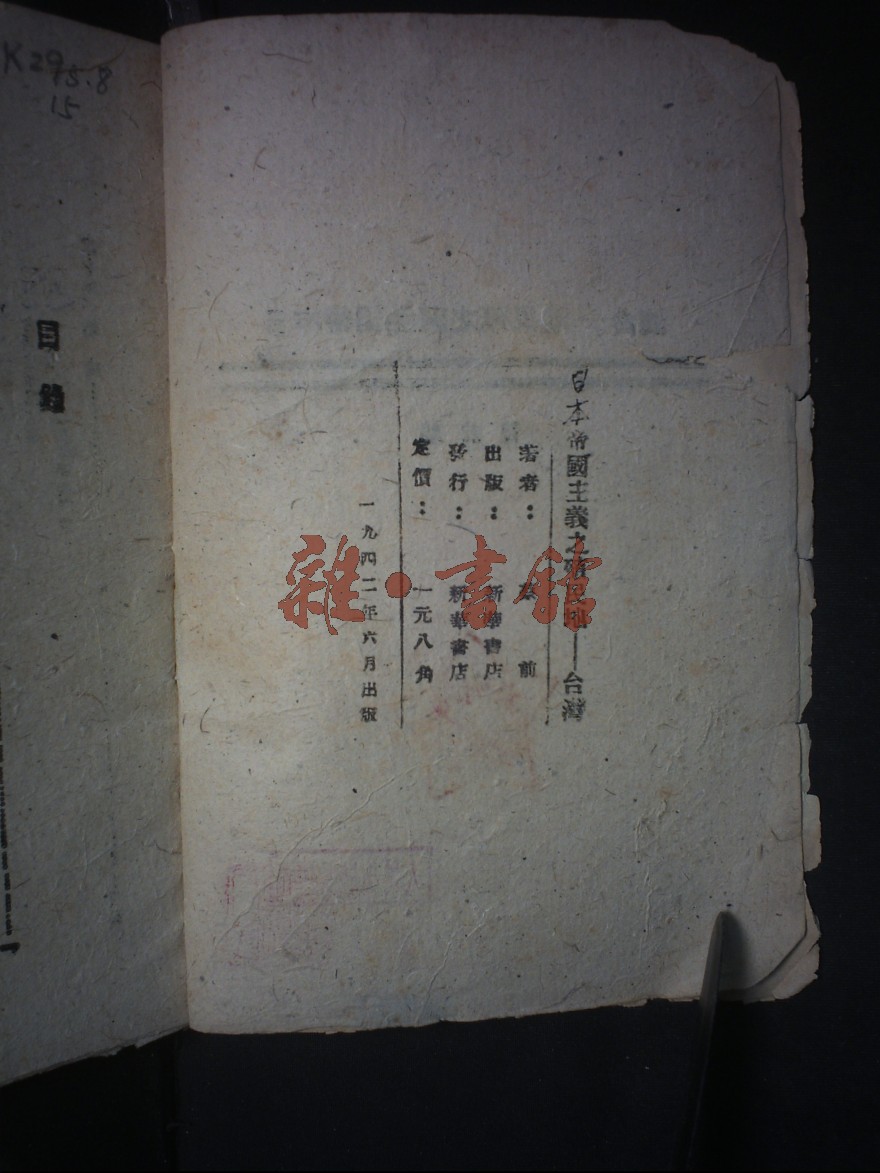 日本帝國主義之殖民地——台灣
著者： 蔡 前
出版： 新華書店
發行： 新華書店
定價： 一元八角
一九四二年六月出版
雜·書館
目錄
K29
15.8
15